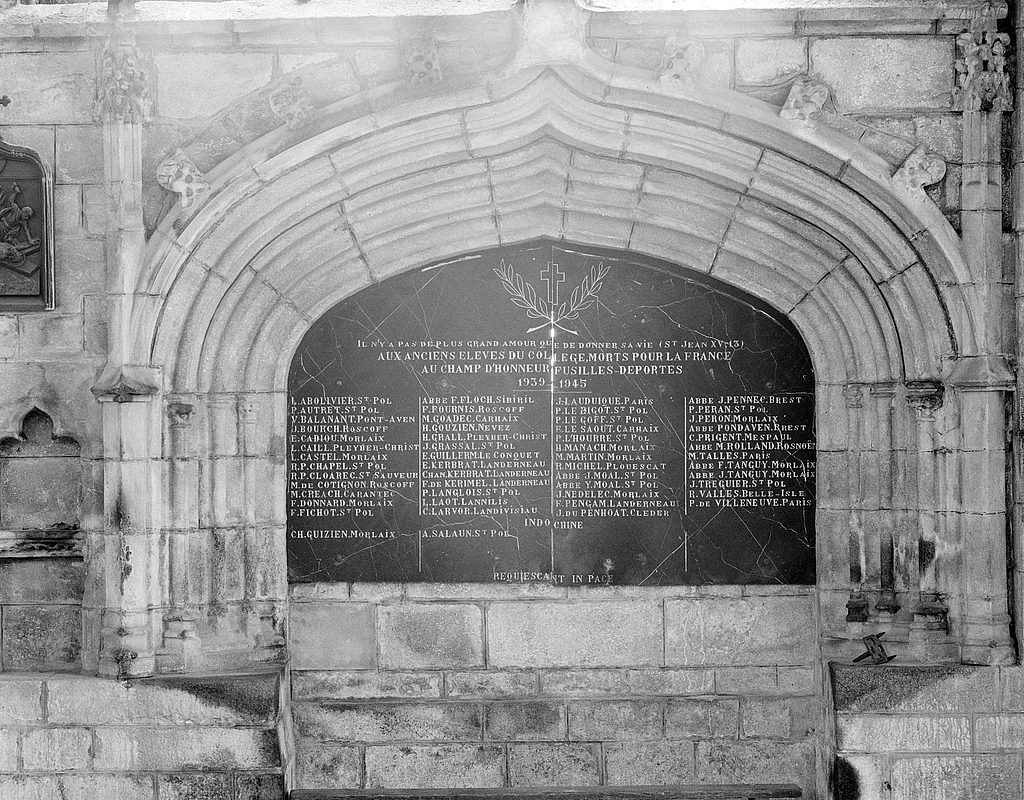 IL N'Y A PAS DE PLUS GRAND AMOUR QUE DE DONNER SA VIE (ST JEAN XV-13)
AUX ANCIENS ELEVES DU COLLEGE, MORTS POUR LA FRANCE
AU CHAMP D'HONNEUR FUSILLES-DEPORTES
1939 1945
L. ABOLIVIER. ST POL
P. AUTRET. ST POL
V. BALANANT. PONT-AVEN
J. BOURCH. ROSCOFF
E. CADIOU. MORLAIX
L. CAILL. PLEYBER-CHRIST
L. CASTEL. MORLAIX
R.P. CHAPEL. ST POL
R.P. CLOAREC. ST SAUVEUR
M. DE COTIGNON. ROSCOFF
M. CREACH. CARANTEC
F. DONNARD. MORLAIX
F. FICHOT. ST POL
ABBE F. FLOCH. SIBIRIL
F. FOURNIS. ROSCOFF
M. GOADEC. CARHAIX
H. GOUZIEN. NEVEZ
H. GRALL. PLEYBER-CHRIST
J. GRASSAL. ST POL
E. GUILLERM. LE CONQUET
E. KERBRAT. LANDERNEAU
CHAN. KERBRAT. LANDERNEAU
F. DE KERIMEL. LANDERNEAU
P. LANGLOIS. ST POL
L. LAOT. LANNILIS
C. LARVOR. LANDIVISIAU
J. LAUDUIQUE. PARIS
P. LE BIGOT. ST POL
P. LE GOFF. ST POL
F. LE SAOUT. CARHAIX
P. L'HOURRE. ST POL
H. MANACH. MORLAIX
M. MARTIN. MORLAIX
R. MICHEL. PLOUESCAT
ABBE J. MOAL. ST POL
ABBE Y. MOAL. ST POL
J. NEDELEC. MORLAIX
F. PENGAM. LANDERNEAU
J. DU PENHOAT. CLEDER
ABBE J. PENNEC. BREST
P. PERAN. ST POL
J. PERON. MORLAIX
ABBE PONDAVEN. BREST
C. PRIGENT. MESPAUL
ABBE M. ROLLAND. ROSNOEN
M. TALLES. PARIS
ABBE F. TANGUY. MORLAIX
ABBE J. TANGUY. MORLAIX
J. TREGUIER. ST POL
R. VALLES. BELLE-ISLE
P. DE VILLENEUVE. PARIS
INDOCHINE
CH. GUIZIEN. MORLAIX
A. SALAUN. ST POL
REQUIESCANT IN PACE